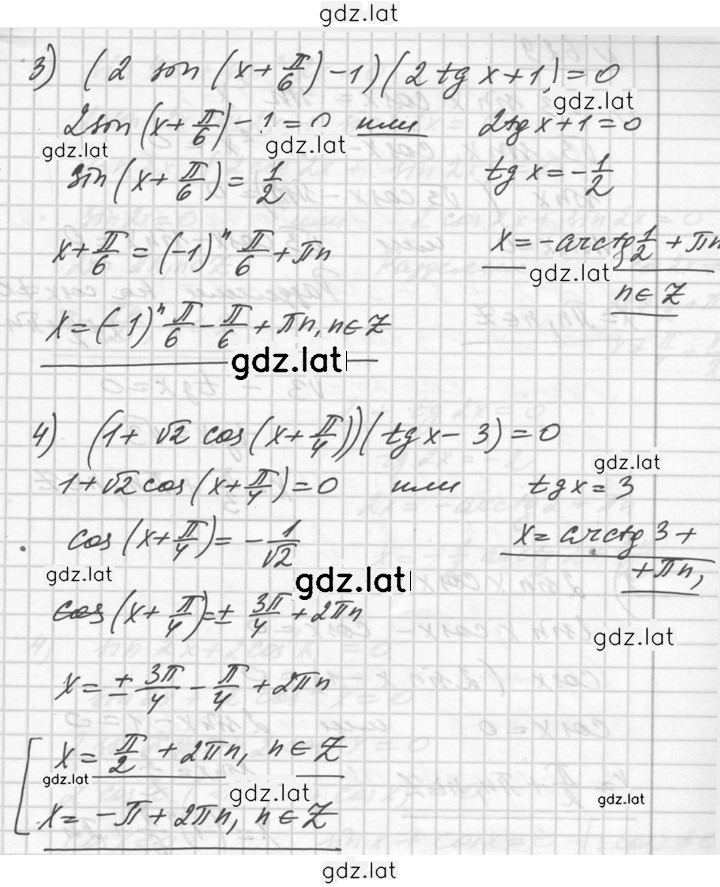 gdz.lat
3) (2 son (x + π/6) - 1)(2 tg x + 1) = 0
gdz.lat
2son(x + π/6) - 1 = 0 или 2tg x + 1 = 0
gdz.lat gdz.lat
sin(x + π/6) = 1/2 tg x = -1/2
x + π/6 = (-1)^n π/6 + πn x = -arctg 1/2 + πn
gdz.lat
n ∈ Z
x = (-1)^n π/6 - π/6 + πn, n ∈ Z
gdz.lat
4) (1 + √2 cos(x + π/4))(tg x - 3) = 0
gdz.lat
1 + √2 cos(x + π/4) = 0 или tg x = 3
cos(x + π/4) = -1/√2 x = arctg 3 +
gdz.lat gdz.lat + πn,
cos(x + π/4) = ± 3π/4 + 2πn
gdz.lat
x = ± 3π/4 - π/4 + 2πn
[ x = π/2 + 2πn, n ∈ Z
gdz.lat gdz.lat gdz.lat
x = -π + 2πn, n ∈ Z
gdz.lat